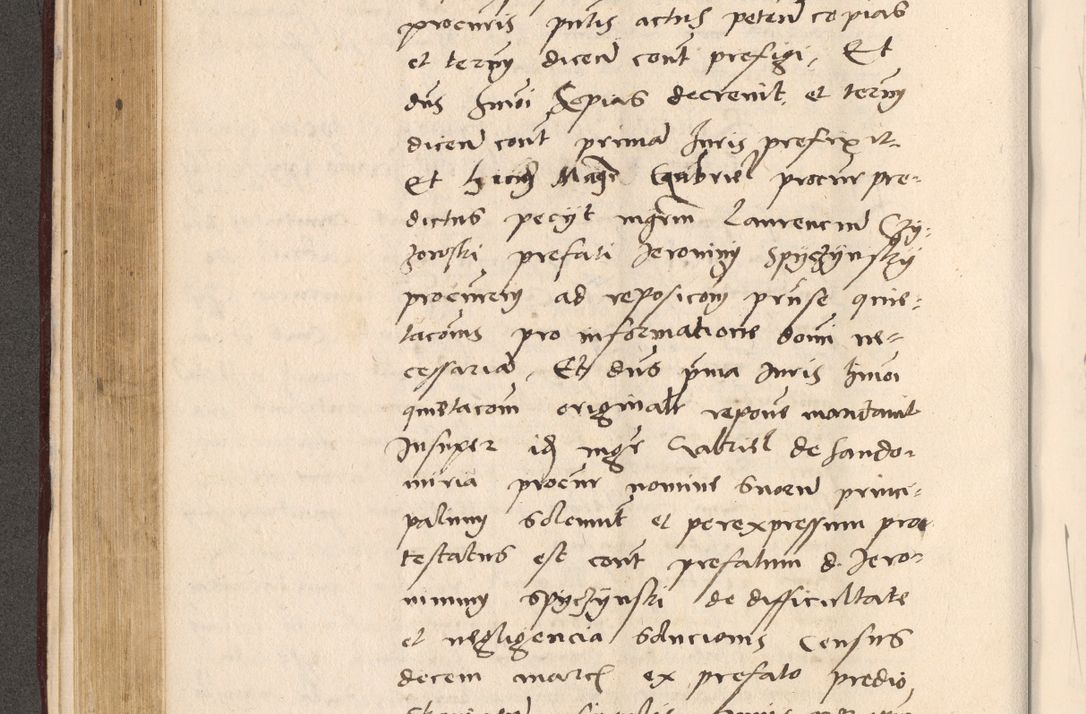 procuris pntis actus peten copias
et termn dicen cont prefigi, Et
dns hmoi Copias decrevit, et termn
dicen cont prima Juris prefixit.
Et Magr Gabriel procur pre-
dictus pecyt mgrm Laurencium Czy-
zowski prefati Jeronimy Spyczynsky
procurem ad reposicom pnse quie-
taconis pro informatione domi ne-
cessaria, Et dns pma Juris hmoi
quietacom originalr repone mandavit
Insuper id mgr Gabriel de Sando-
miria procur nomine suoru princi-
palium solemnit et per expressum pro
testatus est cont prefatum d. Jero-
nimum Spyczynski de difficultate
et negligencia solucionis Census
decem marc ex prefato predio